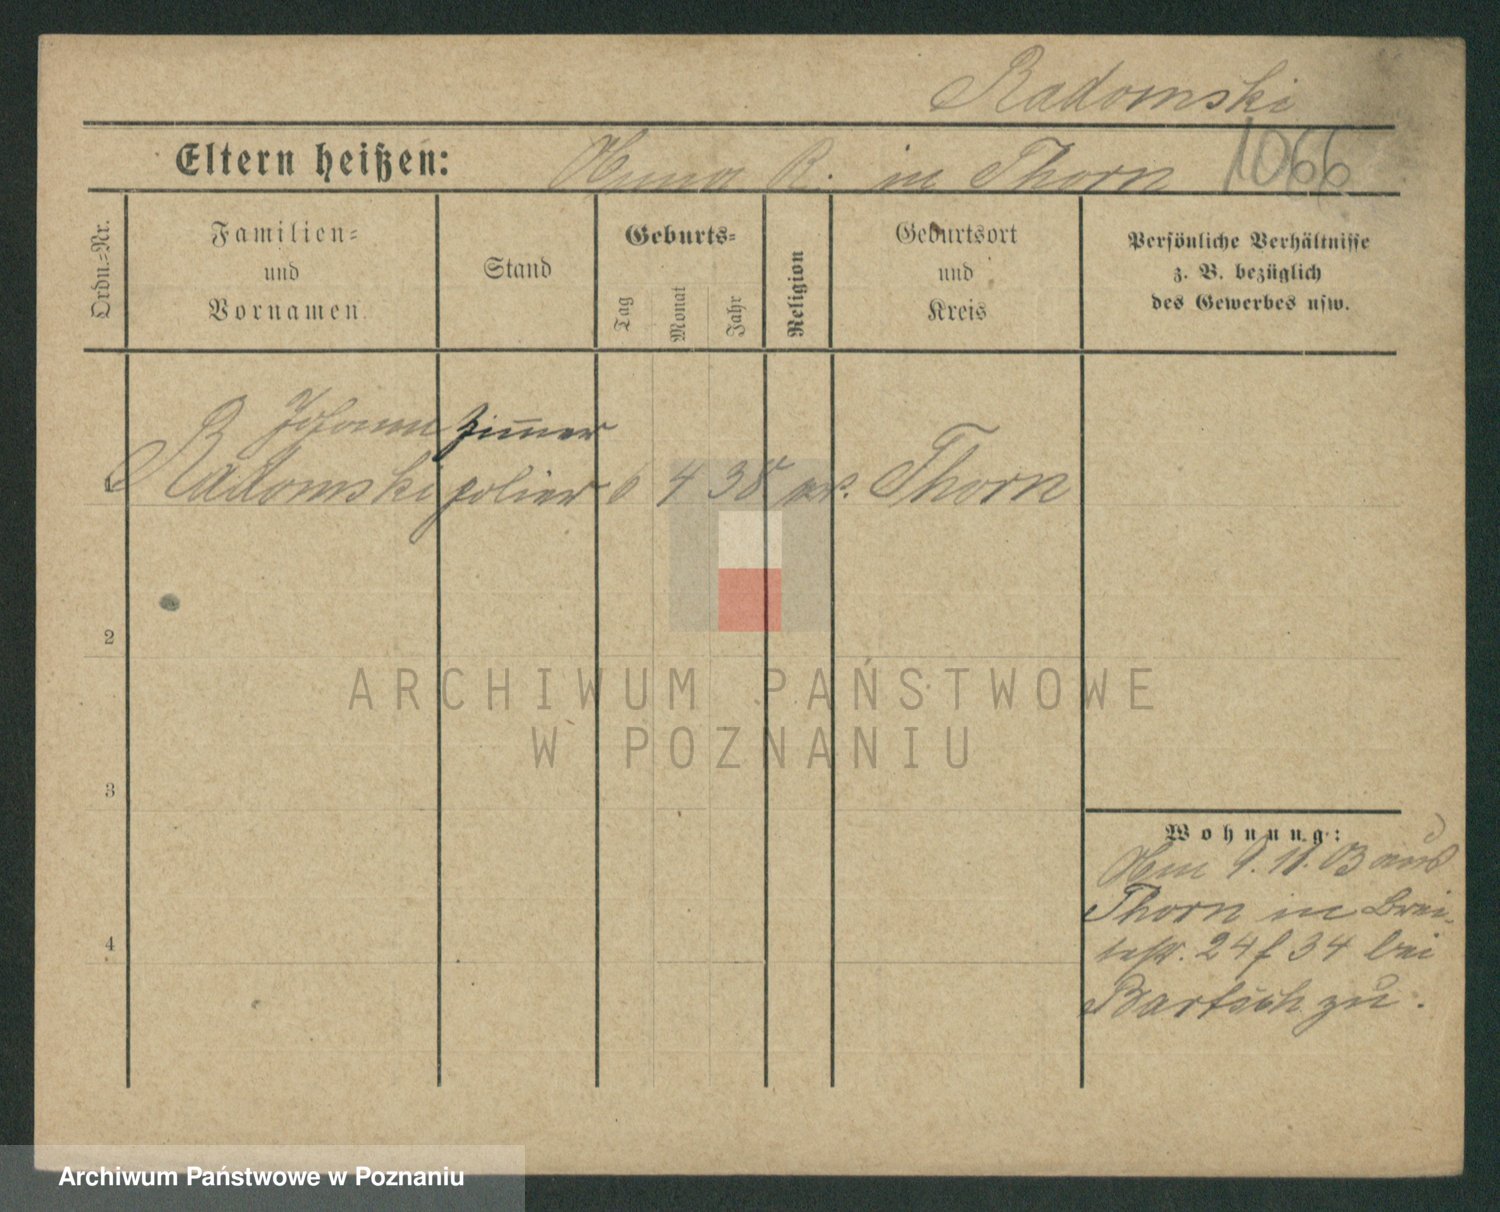 Radomski
Eltern heißen: Anna R. in Thorn 1066
Ordn.-Nr.
Familien-
und
Vornamen
Stand
Geburts-
Tag
Monat
Jahr
Religion
Geburtsort
und
Kreis
Persönliche Verhältnisse
z. B. bezüglich
des Gewerbes usw.
Johann Zim̅er
1 Radomski polier 6 4 38 Thorn
2
3
4
Wohnung:
Am 9. 11. 03 aus
Thorn in Brei-
testr. 24 f 34 bei
Bartsch zu.
ARCHIWUM PAŃSTWOWE
W POZNANIU
Archiwum Państwowe w Poznaniu